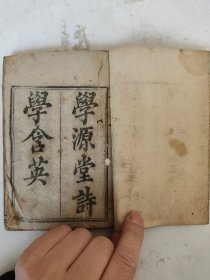 學源堂詩
學含英